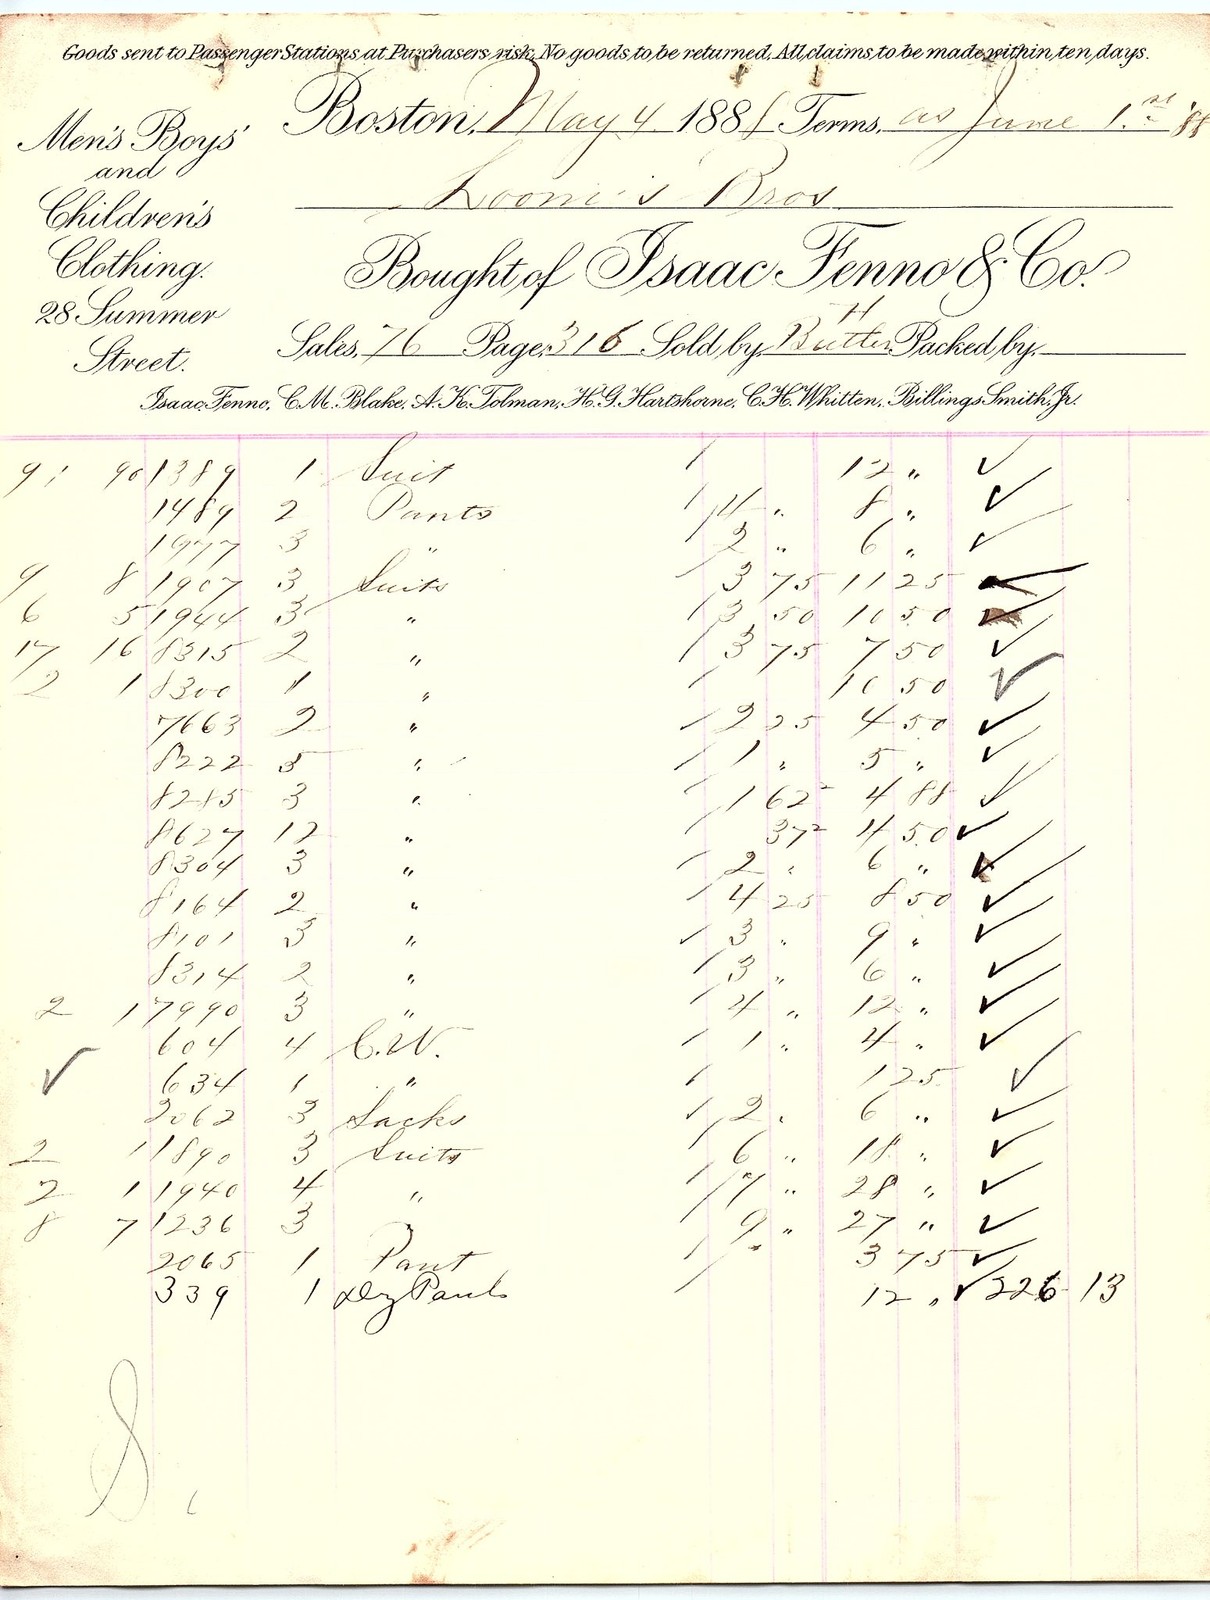 Goods sent to Passenger Stations at Purchasers risk. No goods to be returned. All claims to be made within ten days.
Boston, May 4 1888 Terms, as June 1.st '88
Loomis Bros.
Men's Boys'
and
Children's
Clothing.
28 Summer
Street.
Bought of Isaac Fenno & Co.
Sales, 76 Page, 316 Sold by, Packed by,
Isaac Fenno, C.M. Blake, A.K. Tolman, H.G. Hartshorne, C.H. Whitten, Billings Smith, Jr.
91 90 1389 1 Suit 12 " ✓
1489 2 Pants 4 " 8 " ✓
1977 3 " 2 " 6 " ✓
9 8 1907 3 Suits 3 75 11 25 ✓
6 5 1944 3 " 3 50 10 50 ✓
17 16 8315 2 " 3 75 7 50 ✓
2 1 8300 1 " 10 50 ✓
7663 2 " 2 25 4 50 ✓
8222 5 " 1 " 5 " ✓
8285 3 " 1 62² 4 88 ✓
8627 12 " 37² 4 50 ✓
8304 3 " 2 " 6 " ✓
8164 2 " 4 25 8 50 ✓
8101 3 " 3 " 9 " ✓
8314 2 " 3 " 6 " ✓
2 1 7990 3 " 4 " 12 " ✓
604 4 C.W. 1 " 4 " ✓
✓ 634 1 " 1 25 ✓
2062 3 Sacks 2 " 6 " ✓
2 1 1890 3 Suits 6 " 18 " ✓
2 1 1940 4 " 7 " 28 " ✓
8 7 1236 3 9 " 27 " ✓
2065 1 Pant " 3 75 ✓
339 1 Dz Pants 12 " ✓ 226 13